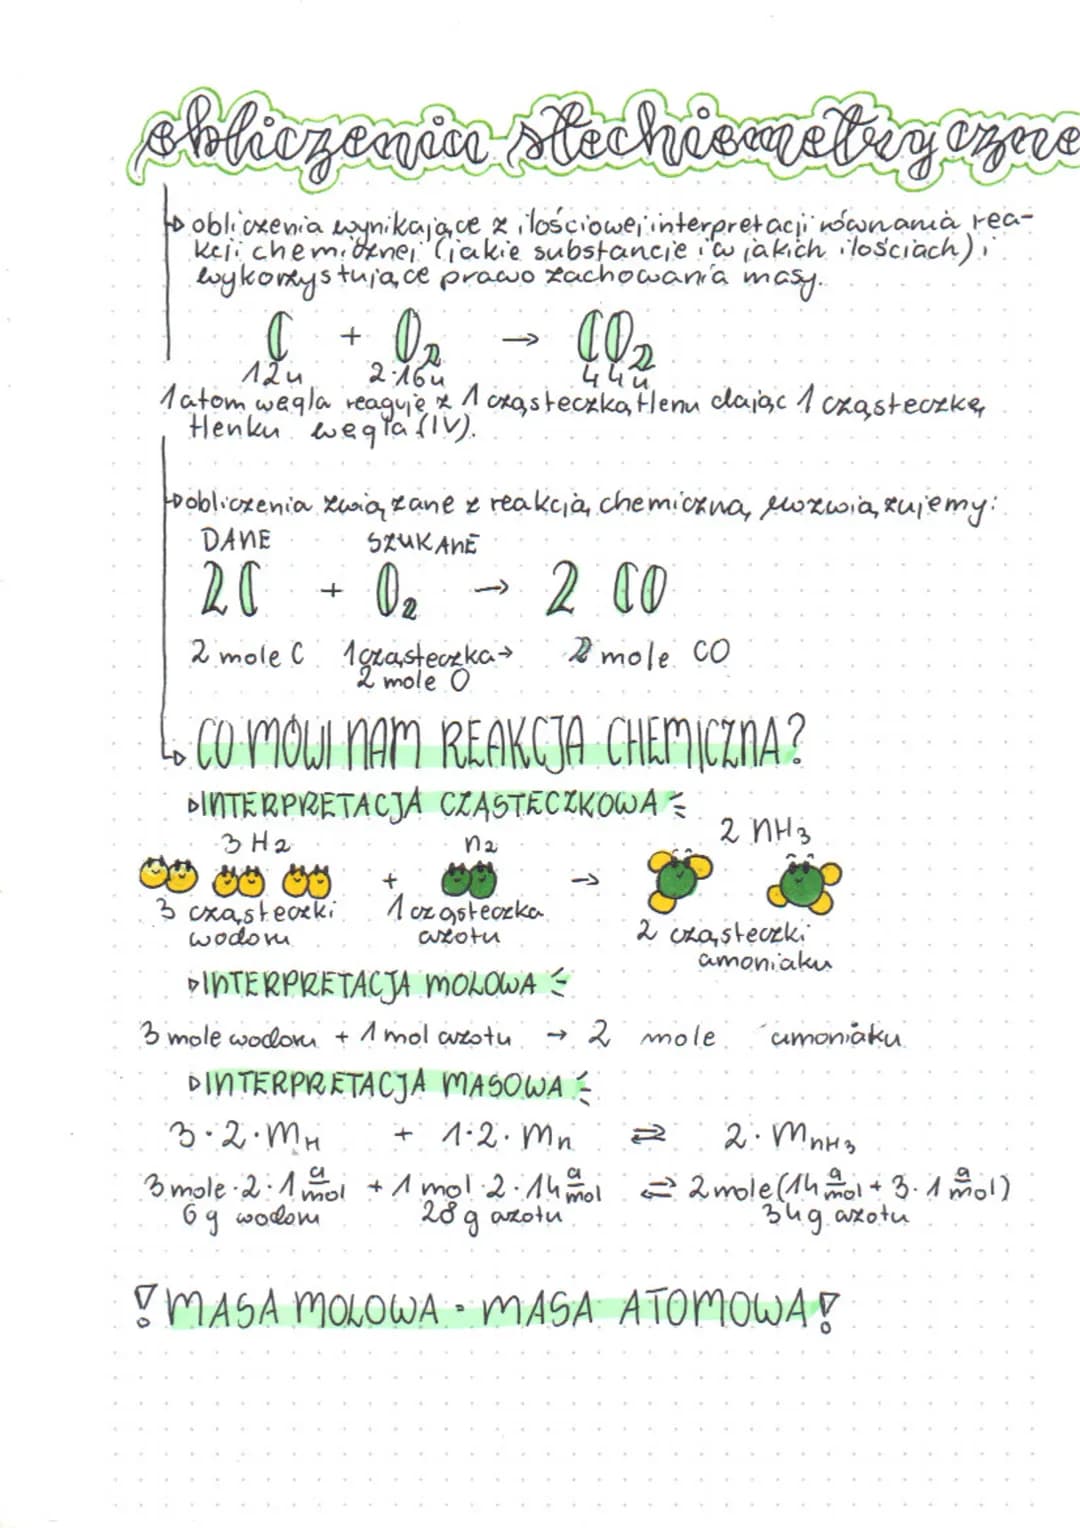 obliczenia stechiometryczne
obliczenia wynikające z ilościowej interpretacji równania rea-
kcji chemicznej (jakie substancje i w jakich ilościach) i
wykorzystujące prawo zachowania masy.
C + O₂ → CO₂
12u 2·16u 44u
1 atom węgla reaguje z 1 cząsteczką tlenu dając 1 cząsteczkę
tlenku węgla (IV).
obliczenia związane z reakcją chemiczną rozwiązujemy:
DANE SZUKANE
2C + O₂ → 2 CO
2 mole C 1 cząsteczka → 2 mole CO
2 mole O
CO MÓWI NAM REAKCJA CHEMICZNA?
INTERPRETACJA CZĄSTECZKOWA
3 H₂ N₂ 2 NH₃
+ →
3 cząsteczki 1 cząsteczka 2 cząsteczki
wodoru azotu amoniaku
INTERPRETACJA MOLOWA
3 mole wodoru + 1 mol azotu → 2 mole amoniaku
INTERPRETACJA MASOWA
3·2·M_H + 1·2·M_N ⇄ 2·M_NH₃
3 mole·2·1 g/mol + 1 mol·2·14 g/mol ⇄ 2 mole (14 g/mol + 3·1 g/mol)
6g wodoru 28g azotu 34g azotu
! MASA MOLOWA = MASA ATOMOWA !